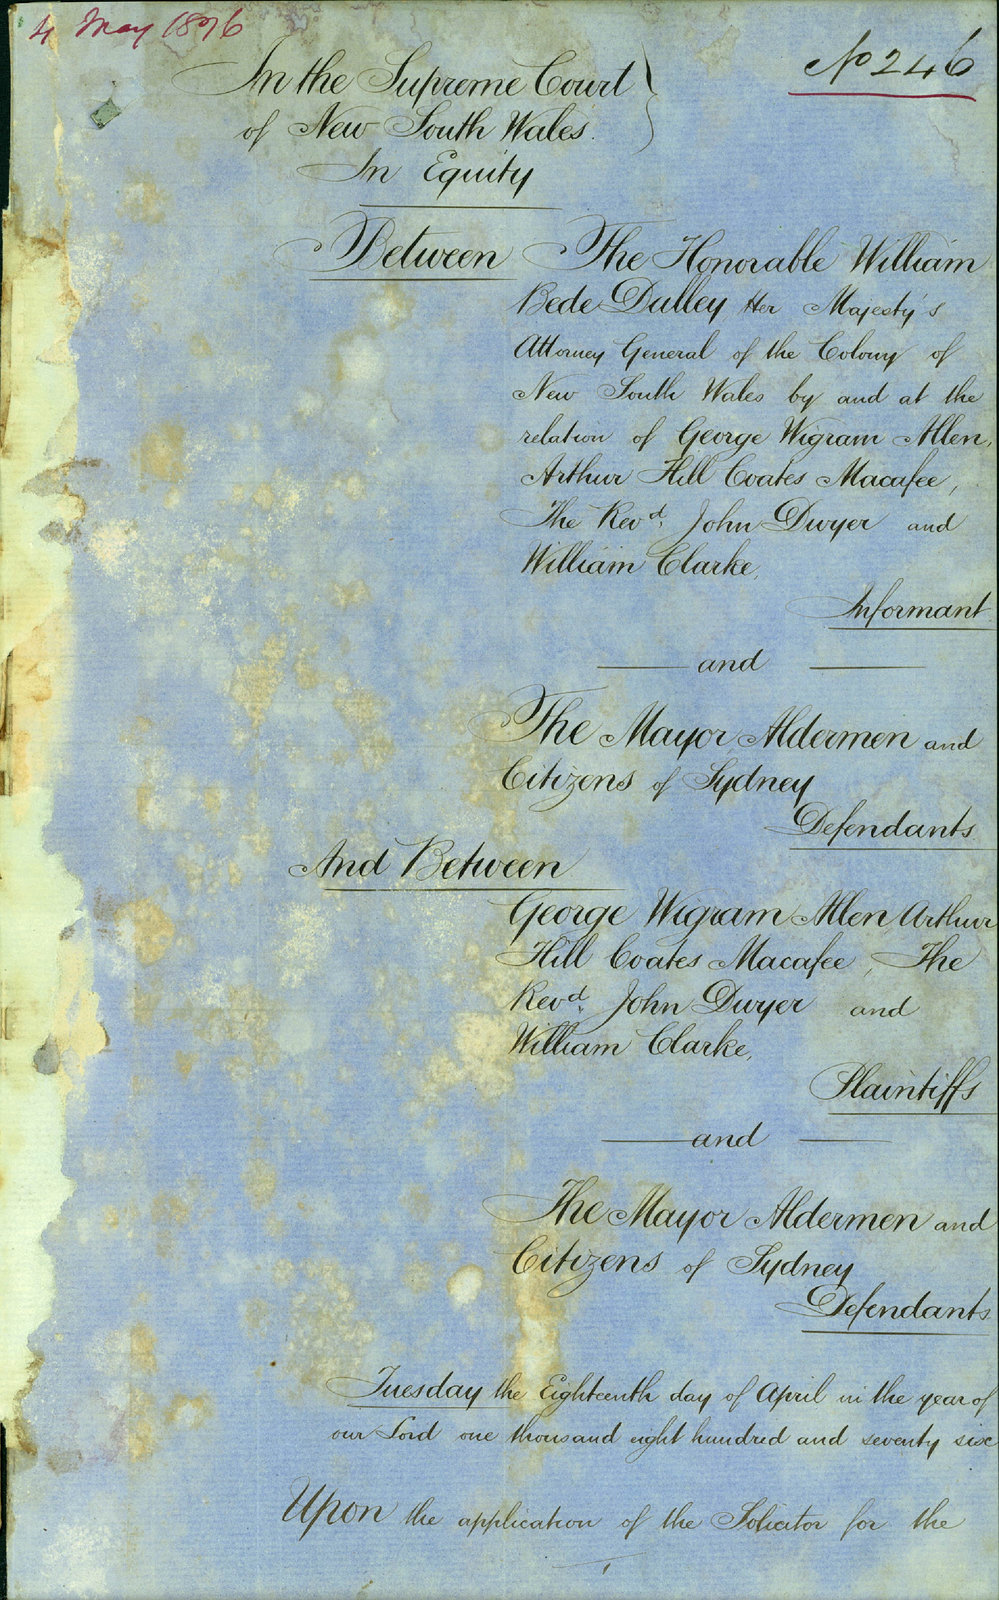 4 May 1876
No 246
In the Supreme Court
of New South Wales.
In Equity
Between The Honorable William
Bede Dalley Her Majesty's
Attorney General of the Colony of
New South Wales by and at the
relation of George Wigram Allen,
Arthur Hill Coates Macafee,
The Revd. John Dwyer and
William Clarke,
Informant
and
The Mayor Aldermen and
Citizens of Sydney
Defendants
And Between
George Wigram Allen Arthur
Hill Coates Macafee, The
Revd. John Dwyer and
William Clarke,
Plaintiffs
and
The Mayor Aldermen and
Citizens of Sydney
Defendants
Tuesday the Eighteenth day of April in the year of
our Lord one thousand eight hundred and seventy six
Upon the application of the Solicitor for the